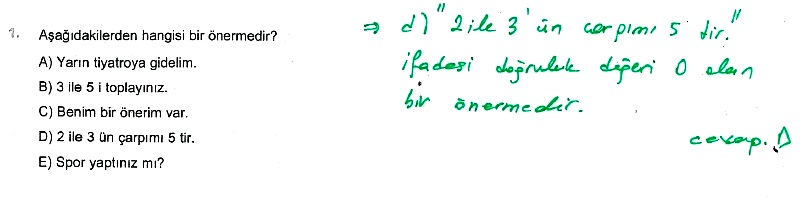 1. Aşağıdakilerden hangisi bir önermedir?
A) Yarın tiyatroya gidelim.
B) 3 ile 5 i toplayınız.
C) Benim bir önerim var.
D) 2 ile 3 ün çarpımı 5 tir.
E) Spor yaptınız mı?
⇒ d) "2 ile 3'ün çarpımı 5 tir."
ifadesi doğruluk değeri 0 olan
bir önermedir.
cevap. D